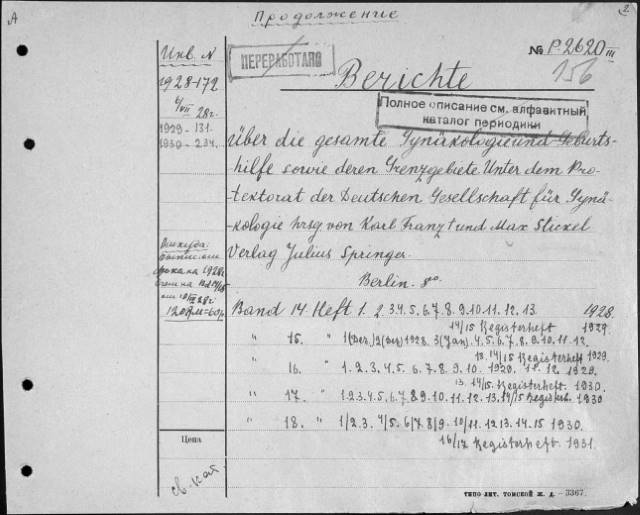 A
Продолжение
2
Инв. N
ПЕРЕРАБОТАНО
№ P-2620 III
156
1928-172
Berichte
6/VII 28 г.
Полное описание см. алфавитный
каталог периодики
1929 - 131.
1930 - 234.
über die gesamte Gynäkologie und Geburts-
hilfe sowie deren Grenzgebiete. Unter dem Pro-
tektorat der Deutschen Gesellschaft für Gynä-
kologie hrsg von Karl Franz † und Max Stickel
Verlag Julius Springer.
Откуда:
Berlin. 8°.
Band 14. Heft 1. 2. 3. 4. 5. 6. 7. 8. 9. 10. 11. 12. 13. 1928.
14/15 Registerheft 1929.
" 15. " 1 (Dez.) 2 (Dez) 1928. 3 (Jan). 4. 5. 6. 7. 8. 9. 10. 11. 12.
13. 14/15 Registerheft 1929.
" 16. " 1. 2. 3. 4. 5. 6. 7. 8. 9. 10. 1929. 11. 12. 1929.
13. 14/15. Registerheft. 1930.
" 17. " 1. 2. 3. 4. 5. 6. 7. 8. 9. 10. 11. 12. 13. 14/15 Registerh. 1930
" 18. " 1/2. 3. 4/5. 6/7. 8/9. 10/11. 12. 13. 14. 15 1930.
16/17 Registerheft. 1931.
Цена
св. кат.
ТИПО ЛИТ. ТОМСКОЙ Ж. Д. - 3367.